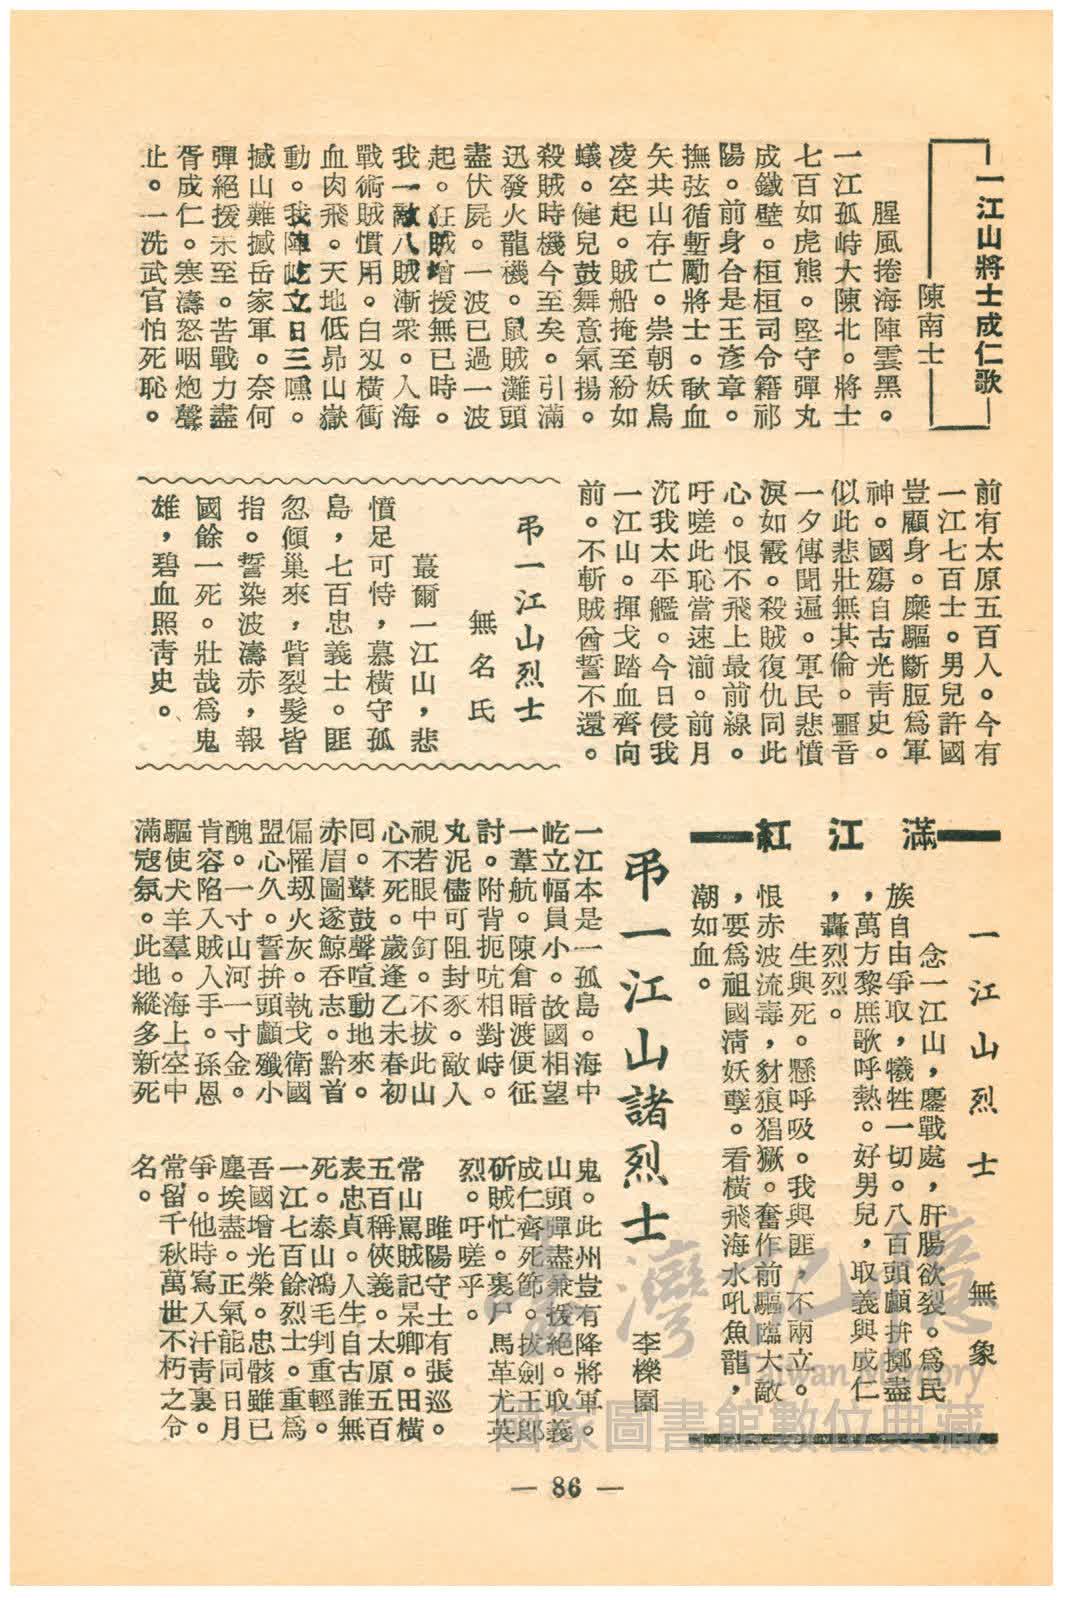 一江山將士成仁歌
陳南士
腥風捲海陣雲黑。
一江孤峙大陳北。將士
七百如虎熊。堅守彈丸
成鐵壁。桓桓司令籍祁
陽。前身合是王彥章。
撫弦循塹勵將士。歃血
矢共山存亡。崇朝妖鳥
凌空起。賊船掩至紛如
蟻。健兒鼓舞意氣揚。
殺賊時機今至矣。引滿
迅發火龍機。鼠賊灘頭
盡伏屍。一波已過一波
起。狂賊增援無已時。
我一敵八賊漸衆。人海
戰術賊慣用。白刄橫衝
血肉飛。天地低昻山嶽
動。我陣屹立日三曛。
撼山難撼岳家軍。奈何
彈絕援未至。苦戰力盡
胥成仁。寒濤怒咽炮聲
止。一洗武官怕死恥。
前有太原五百人。今有
一江七百士。男兒許國
豈顧身。糜軀斷脰爲軍
神。國殤自古光靑史。
似此悲壯無其倫。噩音
一夕傳聞遍。軍民悲憤
淚如霰。殺賊復仇同此
心。恨不飛上最前線。
吁嗟此恥當速湔。前月
沉我太平艦。今日侵我
一江山。揮戈踏血齊向
前。不斬賊酋誓不還。
弔一江山烈士
無名氏
蕞爾一江山，悲
憤足可恃，慕橫守孤
島，七百忠義士。匪
忽傾巢來，眥裂髮皆
指。誓染波濤赤，報
國餘一死。壯哉爲鬼
雄，碧血照靑史。
滿江紅
一江山烈士
無象
念一江山，鏖戰處，肝腸欲裂。爲民
族自由爭取，犧牲一切。八百頭顱拚擲盡
，萬方黎庶歌呼熱。好男兒，取義與成仁
，轟烈烈。
生與死。懸呼吸。我與匪，不兩立。
恨赤波流毒，豺狼猖獗。奮作前驅臨大敵
，要爲祖國淸妖孽。看橫飛海水吼魚龍，
潮如血。
弔一江山諸烈士
李櫟園
一江本是一孤島。海中
屹立幅員小。故國相望
一葦航。陳倉暗渡便征
討。附背扼吭相對峙。
丸泥儘可阻封豕。敵人
視若眼中釘。不拔此山
心不死。歲逢乙未春初
囘。鼙鼓聲喧動地來。
赤眉圖逐鯨吞志。黔首
偏罹刼火灰。執戈衛國
盟心久。誓拚頭顱殲小
醜。一寸山河一寸金。
肯容陷入賊人手。孫恩
驅使犬羊羣。海上空中
滿寇氛。此地縱多新死
鬼。此州豈有降將軍。
山頭彈盡兼援絕。取義
成仁齊死節。拔劍王郎
斫賊忙。裹尸馬革尤英
烈。吁嗟乎。
睢陽守土有張巡。
常山罵賊記杲卿。田橫
五百稱俠義。太原五百
表忠貞。人生自古誰無
死。泰山鴻毛判重輕。
一江七百餘烈士。重爲
吾國增光榮。忠骸雖已
塵埃盡。正氣能同日月
爭。他時寫入汗靑裏。
常留千秋萬世不朽之令
名。
— 86 —
臺灣記憶
Taiwan Memory
國家圖書館數位典藏